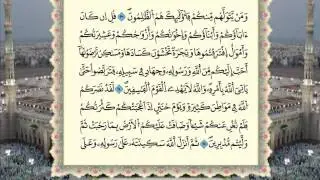 وَمَن يَتَوَلَّهُم مِّنكُمْ فَأُو۟لَٰٓئِكَ هُمُ ٱلظَّٰلِمُونَ ۝ قُلْ إِن كَانَ
ءَابَآؤُكُمْ وَأَبْنَآؤُكُمْ وَإِخْوَٰنُكُمْ وَأَزْوَٰجُكُمْ وَعَشِيرَتُكُمْ
وَأَمْوَٰلٌ ٱقْتَرَفْتُمُوهَا وَتِجَٰرَةٌ تَخْشَوْنَ كَسَادَهَا وَمَسَٰكِنُ تَرْضَوْنَهَآ
أَحَبَّ إِلَيْكُم مِّنَ ٱللَّهِ وَرَسُولِهِۦ وَجِهَادٍ فِى سَبِيلِهِۦ فَتَرَبَّصُوا۟ حَتَّىٰ
يَأْتِىَ ٱللَّهُ بِأَمْرِهِۦ وَٱللَّهُ لَا يَهْدِى ٱلْقَوْمَ ٱلْفَٰسِقِينَ ۝ لَقَدْ نَصَرَكُمُ
ٱللَّهُ فِى مَوَاطِنَ كَثِيرَةٍ وَيَوْمَ حُنَيْنٍ إِذْ أَعْجَبَتْكُمْ كَثْرَتُكُمْ
فَلَمْ تُغْنِ عَنكُمْ شَيْـًٔا وَضَاقَتْ عَلَيْكُمُ ٱلْأَرْضُ بِمَا رَحُبَتْ ثُمَّ
وَلَّيْتُم مُّدْبِرِينَ ۝ ثُمَّ أَنزَلَ ٱللَّهُ سَكِينَتَهُۥ عَلَىٰ رَسُولِهِۦ وَعَلَى